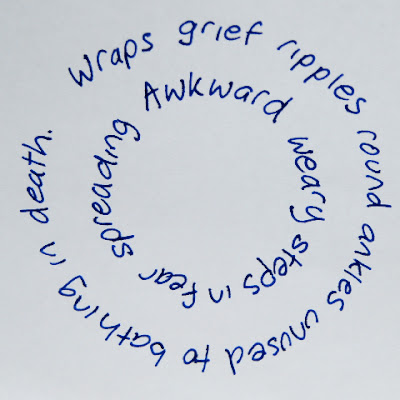 Awkward weary steps in fear spreading
wraps grief ripples round ankles unused to bathing in death.